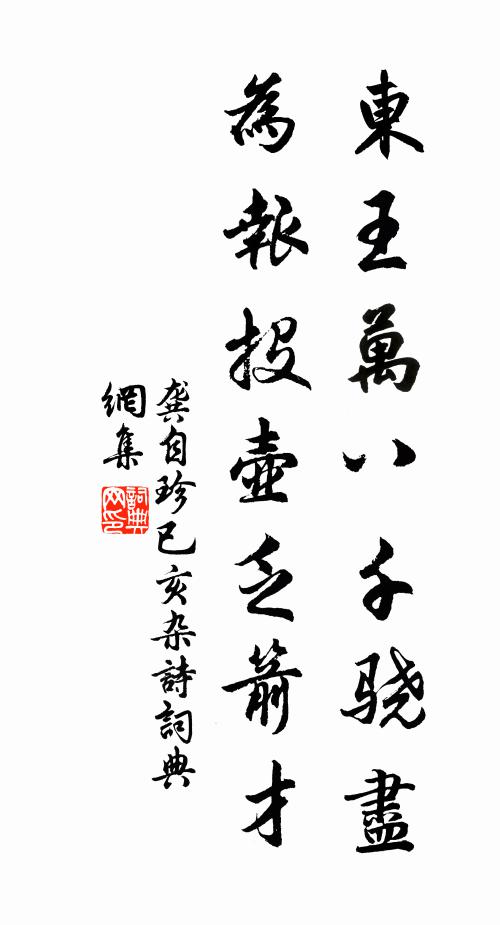 東王萬八千骁盡
為報投壺乏箭才
龔自珍己亥杂詩詞典
網集
詞典
网印